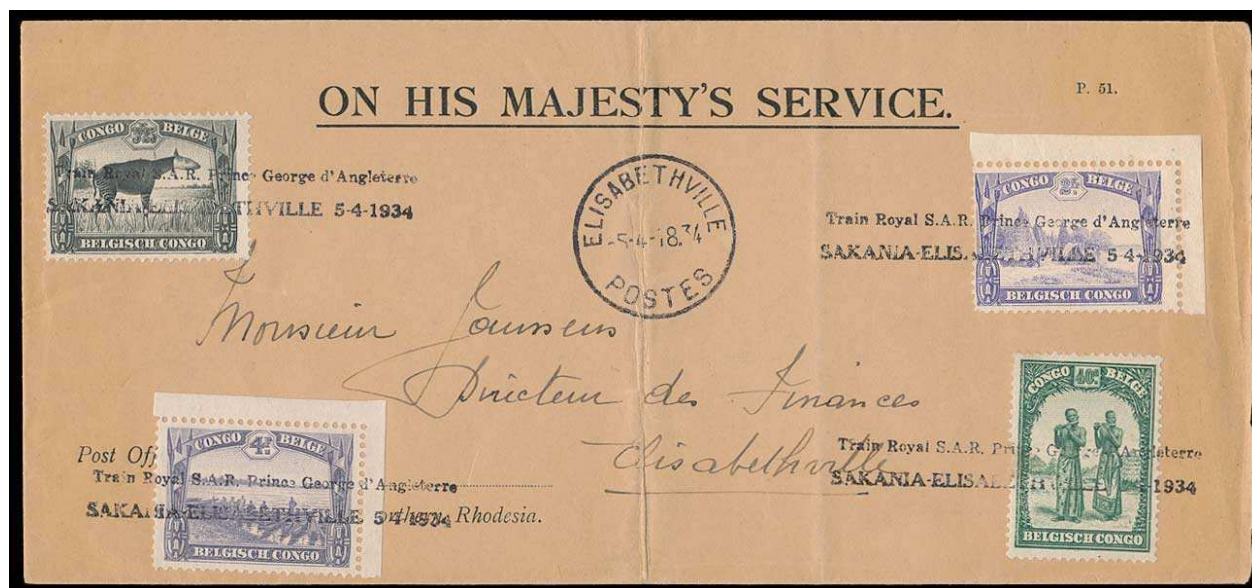 ON HIS MAJESTY'S SERVICE.
P. 51.
CONGO BELGE
BELGISCH CONGO
Train Royal S.A.R. Prince George d'Angleterre
SAKANIA-ELISABETHVILLE 5-4-1934
ELISABETHVILLE
-5-4-18.34
POSTES
CONGO BELGE
BELGISCH CONGO
Train Royal S.A.R. Prince George d'Angleterre
SAKANIA-ELIS. THVILLE 5-4-1934
Monsieur Janssens
Directeur des Finances
Elisabethville
CONGO BELGE
40c
BELGISCH CONGO
Train Royal S.A.R. Prince George d'Angleterre
SAKANIA-ELISABETHVILLE 1934
CONGO BELGE
4F
BELGISCH CONGO
Post Off
Train Royal S.A.R. Prince George d'Angleterre
SAKANIA-ELISABETHVILLE 5-4-1934
Rhodesia.